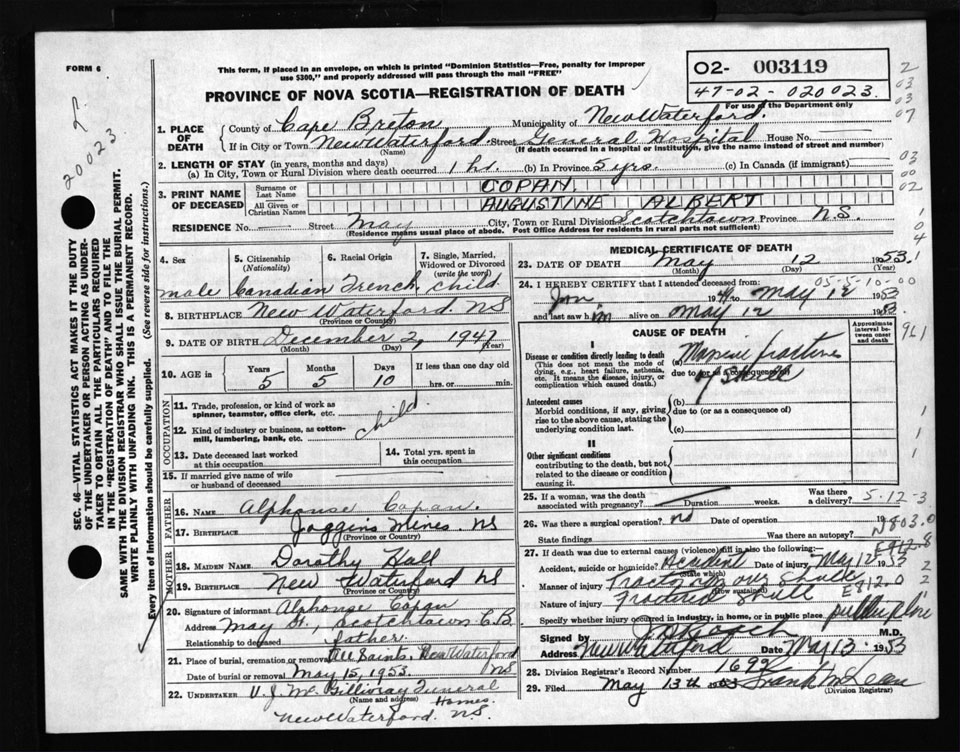 FORM 6
This form, if placed in an envelope, on which is printed "Dominion Statistics—Free, penalty for improper
use $300," and properly addressed will pass through the mail "FREE"
PROVINCE OF NOVA SCOTIA—REGISTRATION OF DEATH
02- 003119
47-02-020023
For use of the Department only
2
03
03
07
03
00
02
1
04
20023
SEC. 46—VITAL STATISTICS ACT MAKES IT THE DUTY
OF THE UNDERTAKER OR PERSON ACTING AS UNDER-
TAKER TO OBTAIN ALL THE PARTICULARS REQUIRED
IN THE "REGISTRATION OF DEATH" AND TO FILE THE
SAME WITH THE DIVISION REGISTRAR WHO SHALL ISSUE THE BURIAL PERMIT.
WRITE PLAINLY WITH UNFADING INK. THIS IS A PERMANENT RECORD.
Every item of information should be carefully supplied. (See reverse side for instructions.)
1. PLACE OF DEATH County of Cape Breton Municipality of New Waterford
If in City or Town New Waterford Street General Hospital House No.
(Name) (If death occurred in a hospital or institution, give the name instead of street and number)
2. LENGTH OF STAY (in years, months and days)
(a) In City, Town or Rural Division where death occurred 1 hr. (b) In Province 5 yrs. (c) In Canada (if immigrant)
3. PRINT NAME OF DECEASED Surname or Last Name COPAN
All Given or Christian Names AUGUSTINE ALBERT
RESIDENCE No. — Street May City, Town or Rural Division Scotchtown Province N.S.
(Residence means usual place of abode. Post Office Address for residents in rural parts not sufficient)
4. Sex 5. Citizenship (Nationality) 6. Racial Origin 7. Single, Married, Widowed or Divorced (write the word)
male Canadian French child
8. BIRTHPLACE New Waterford NS
(Province or Country)
9. DATE OF BIRTH December 2, 1947
(Month) (Day) (Year)
10. AGE in Years Months Days If less than one day old
5 5 10 hrs. or min.
OCCUPATION
11. Trade, profession or kind of work as
spinner, teamster, office clerk, etc.
child
12. Kind of industry or business, as cotton-
mill, lumbering, bank, etc.
13. Date deceased last worked
at this occupation
14. Total yrs. spent in
this occupation
15. If married give name of wife
or husband of deceased
FATHER
16. NAME Alphonse Copan
17. BIRTHPLACE Joggins Mines. NS
(Province or Country)
MOTHER
18. MAIDEN NAME Dorothy Hall
19. BIRTHPLACE New Waterford NS
(Province or Country)
20. Signature of informant Alphonse Copan
Address May St., Scotchtown C.B.
Relationship to deceased father.
21. Place of burial, cremation or removal All Saints, New Waterford NS
Date of burial or removal May 15, 1953.
22. UNDERTAKER V. J. McGillivray Funeral Homes.
(Name and address)
New Waterford. N.S.
MEDICAL CERTIFICATE OF DEATH
23. DATE OF DEATH May 12 1953
(Month) (Day) (Year)
05-5-10-00
24. I HEREBY CERTIFY that I attended deceased from
Jan 19 to May 12 1953
and last saw him alive on May 12 1953.
CAUSE OF DEATH
Approximate interval between onset and death
961
I
Disease or condition directly leading to death
(This does not mean the mode of
dying, e.g., heart failure, asthenia,
etc. It means the disease, injury, or
complication which caused death.)
(a) Massive fracture
due to (or as a consequence of)
of skull
Antecedent causes
Morbid conditions, if any, giving
rise to the above cause, stating the
underlying condition last.
(b)
due to (or as a consequence of)
(c)
II
Other significant conditions
contributing to the death, but not
related to the disease or condition
causing it.
1
1
25. If a woman, was the death
associated with pregnancy? Duration weeks. Was there a delivery?
5-12-3
26. Was there a surgical operation? no Date of operation 19
State findings Was there an autopsy?
N803.0
E912.8
27. If death was due to external causes (violence) fill in also the following:
Accident, suicide or homicide? Accident Date of injury May 12 1953
(state which)
Manner of injury Tractor ran over skull
(how sustained)
E812.0
2
2
Nature of injury Fractured Skull
Specify whether injury occurred in industry, in home, or in public place public place
Signed by M.D.
Address New Waterford Date May 13 1953
28. Division Registrar's Record Number 1699
29. Filed May 13th 1953 Frank McLean
(Division Registrar)